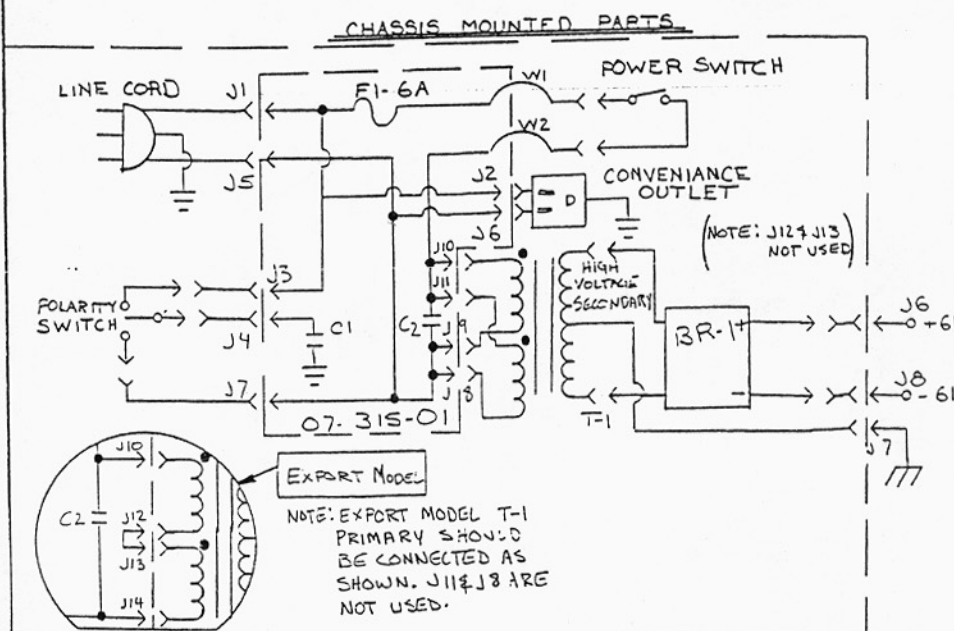 CHASSIS MOUNTED PARTS
LINE CORD
J1
F1-6A
W1
POWER SWITCH
W2
J5
J2
CONVENIANCE
OUTLET
D
J6
(NOTE: J12 & J13
NOT USED)
J10
J3
J11
HIGH
VOLTAGE
SECONDARY
POLARITY
SWITCH
J4
C1
C2
J9
BR-1
+
-
J6
+61
J8
-61
J7
J8
T-1
07-315-01
J7
J10
EXPORT MODEL
C2
J12
J13
J14
NOTE: EXPORT MODEL T-1
PRIMARY SHOULD
BE CONNECTED AS
SHOWN. J11 & J8 ARE
NOT USED.